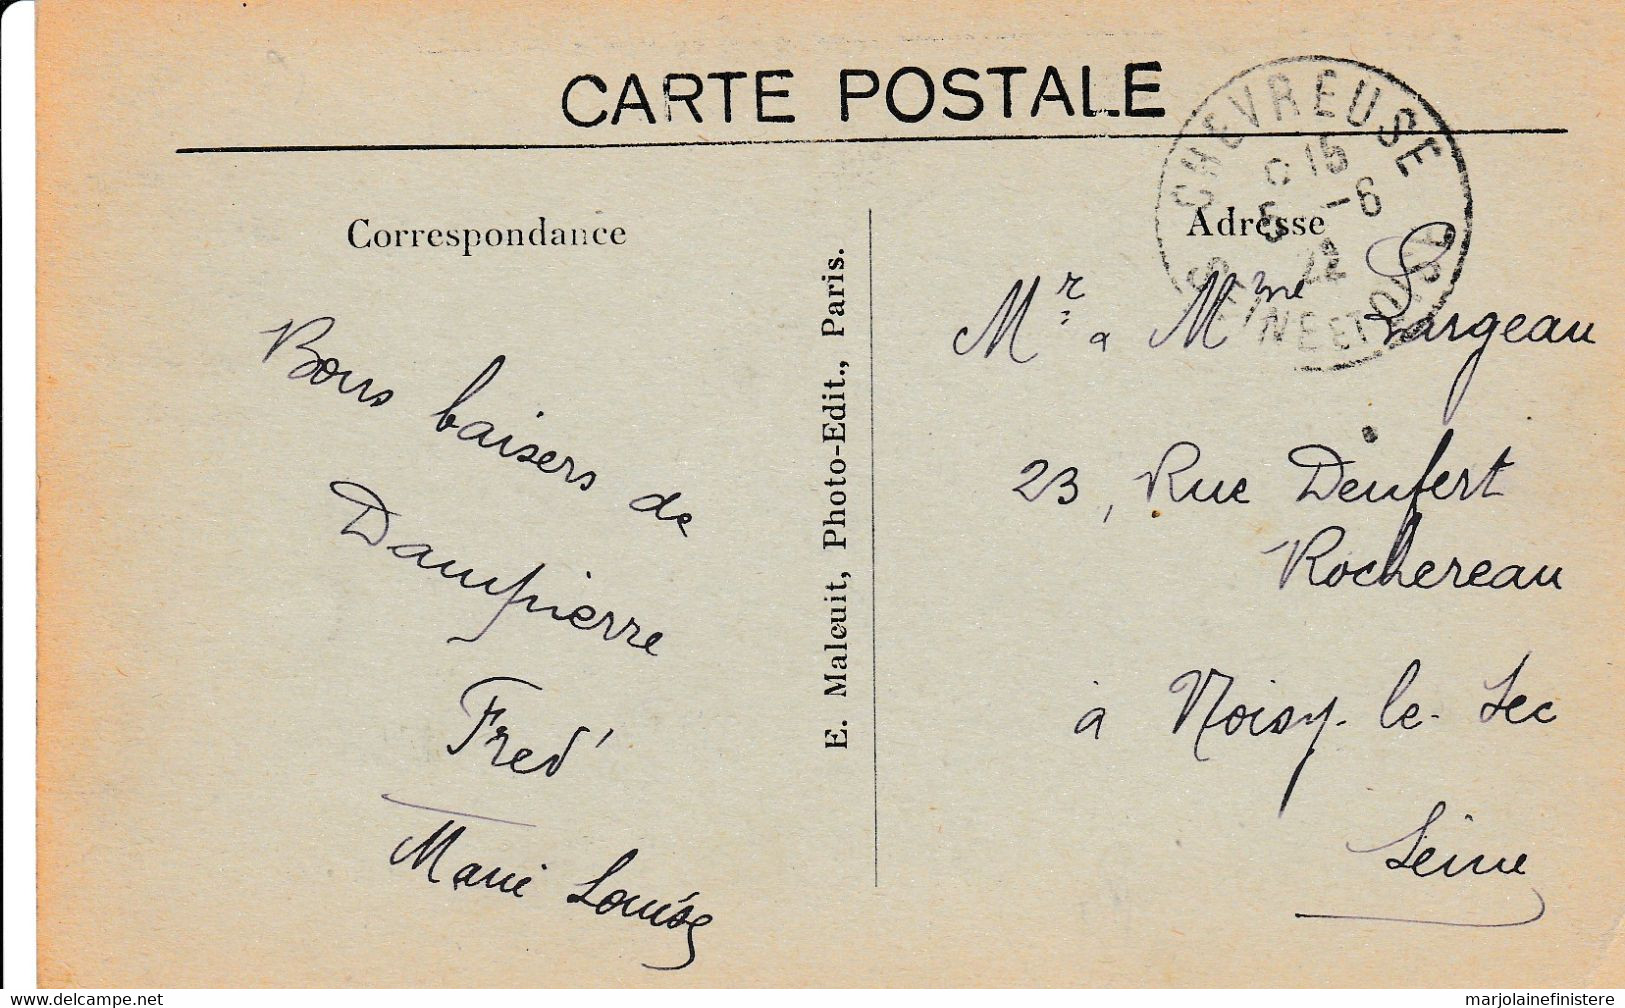 CARTE POSTALE
CHEVREUSE
15
5 -6
22
SEINE ET OISE
Correspondance
Adresse
Bons baisers de
Dampierre
Fred
Marie Louise
E. Malcuit, Photo-Edit., Paris.
Mr & Mme Largeau
23, Rue Denfert
Rochereau
à Noisy-le-Sec
Seine
delcampe.net
marjolainefinistere